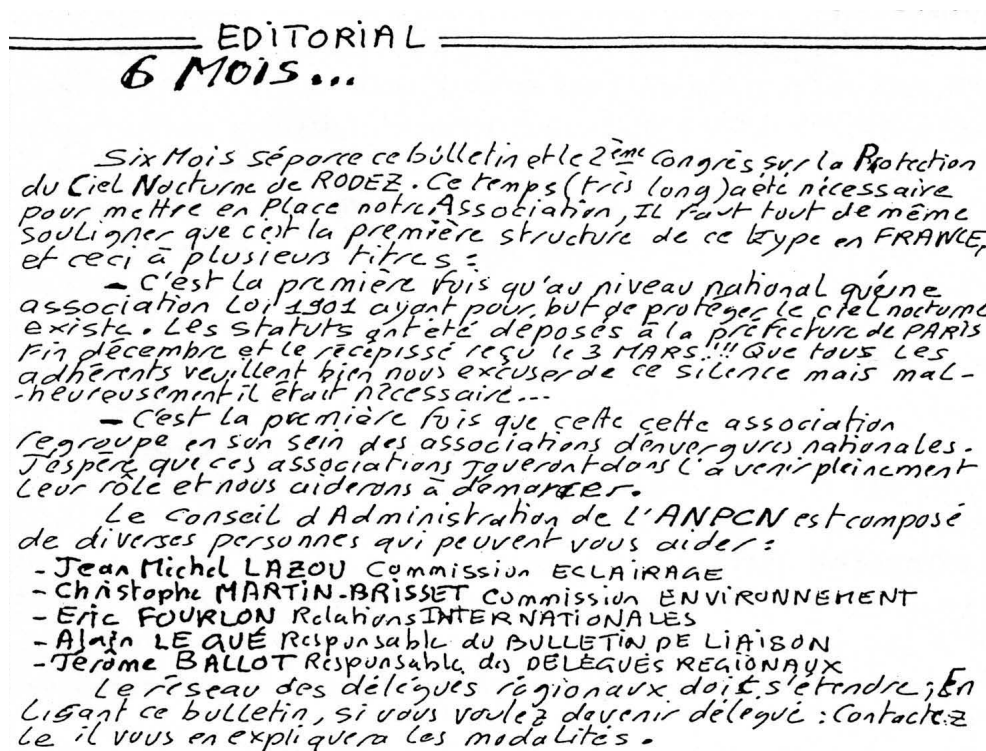 EDITORIAL
6 MOIS...
Six Mois séparce ce bulletin et le 2ème Congrès sur la Protection
du Ciel Nocturne de RODEZ. Ce temps (très long) a été nécessaire
pour mettre en Place notre Association, Il faut tout de même
souligner que c'est la première structure de ce type en FRANCE,
et ceci à plusieurs titres :
- C'est la première fois qu'au niveau national qu'une
association Loi 1901 ayant pour but de protéger le ciel nocturne
existe. Les statuts ont été déposés à la préfecture de PARIS
Fin décembre et le récépissé reçu le 3 MARS.!!! Que tous les
adhérents veuillent bien nous excuser de ce silence mais mal-
-heureusement il était nécessaire...
- C'est la première fois que cette cette association
regroupe en son sein des associations d'envergures nationales.
J'espère que ces associations joueront dans l'avenir pleinement
leur rôle et nous aiderons à démarrer.
Le Conseil d'Administration de l'ANPCN est composé
de diverses personnes qui peuvent vous aider :
- Jean Michel LAZOU Commission ECLAIRAGE
- Christophe MARTIN-BRISSET Commission ENVIRONNEMENT
- Eric FOURLON Relations INTERNATIONALES
- Alain LE QUÉ Responsable du BULLETIN DE LIAISON
- Jérôme BALLOT Responsable des DÉLÉGUÉS REGIONAUX
Le réseau des délégués régionaux doit s'étendre ; En
Lisant ce bulletin, si vous voulez devenir délégué : Contactez
le il vous en expliquera les modalités.